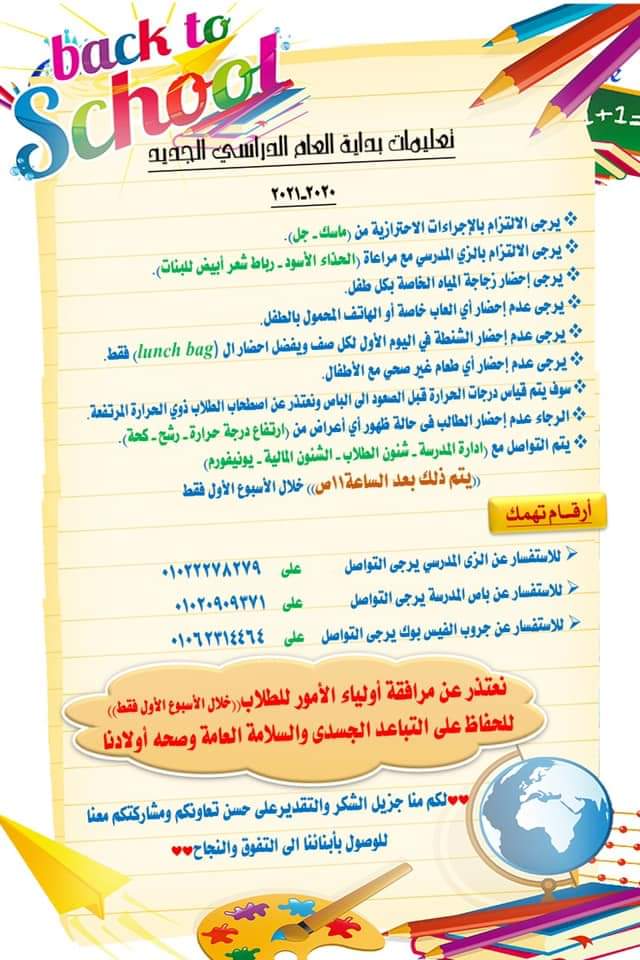 back to
School
1+1=
تعليمات بداية العام الدراسي الجديد
٢٠٢٠ـ٢٠٢١
❖ يرجى الالتزام بالإجراءات الاحترازية من (ماسك ـ جل).
❖ يرجى الالتزام بالزي المدرسي مع مراعاة (الحذاء الأسود ـ رباط شعر أبيض للبنات).
❖ يرجى إحضار زجاجة المياه الخاصة بكل طفل.
❖ يرجى عدم إحضار أي العاب خاصة أو الهاتف المحمول بالطفل.
❖ يرجى عدم إحضار الشنطة في اليوم الأول لكل صف ويفضل احضار ال (lunch bag) فقط.
❖ يرجى عدم إحضار أي طعام غير صحي مع الأطفال.
❖ سوف يتم قياس درجات الحرارة قبل الصعود الى الباص ونعتذر عن اصطحاب الطلاب ذوي الحرارة المرتفعة.
❖ الرجاء عدم إحضار الطالب فى حالة ظهور أي أعراض من (ارتفاع درجة حرارة ـ رشح ـ كحة).
❖ يتم التواصل مع (ادارة المدرسة ـ شئون الطلاب ـ الشئون المالية ـ يونيفورم)
((يتم ذلك بعد الساعة١١ص)) خلال الأسبوع الأول فقط
أرقام تهمك
➢ للاستفسار عن الزى المدرسي يرجى التواصل على ٠١٠٢٢٢٧٨٢٧٩
➢ للاستفسار عن باص المدرسة يرجى التواصل على ٠١٠٢٠٩٠٩٣٧١
➢ للاستفسار عن جروب الفيس بوك يرجى التواصل على ٠١٠٦٢٣١٤٤٦٤
نعتذر عن مرافقة أولياء الأمور للطلاب((خلال الأسبوع الأول فقط))
للحفاظ على التباعد الجسدى والسلامة العامة وصحه أولادنا
♥♥لكم منا جزيل الشكر والتقديرعلى حسن تعاونكم ومشاركتكم معنا
للوصول بأبنائنا الى التفوق والنجاح♥♥